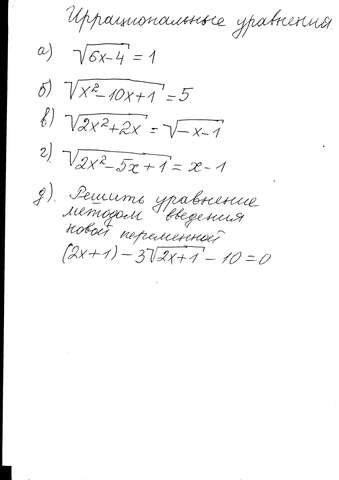 Иррациональные уравнения
а) √6x-4 = 1
б) √x²-10x+1 = 5
в) √2x²+2x = √-x-1
г) √2x²-5x+1 = x-1
д). Решить уравнение
методом введения
новой переменной
(2x+1)-3√2x+1 -10=0